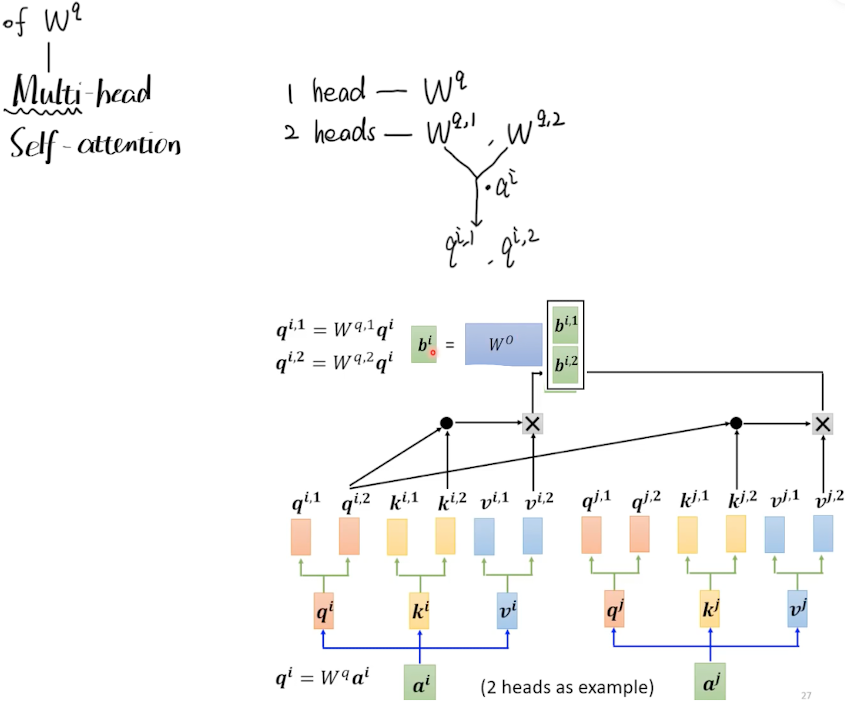 of W^q
Multi-head
Self-attention
1 head — W^q
2 heads — W^{q,1} , W^{q,2}
· a^i
q^{i,1} , q^{i,2}
q^{i,1} = W^{q,1}q^i
q^{i,2} = W^{q,2}q^i
b^i = W^O
b^{i,1}
b^{i,2}
q^{i,1} q^{i,2} k^{i,1} k^{i,2} v^{i,1} v^{i,2} q^{j,1} q^{j,2} k^{j,1} k^{j,2} v^{j,1} v^{j,2}
q^i k^i v^i q^j k^j v^j
q^i = W^q a^i
a^i (2 heads as example) a^j
27